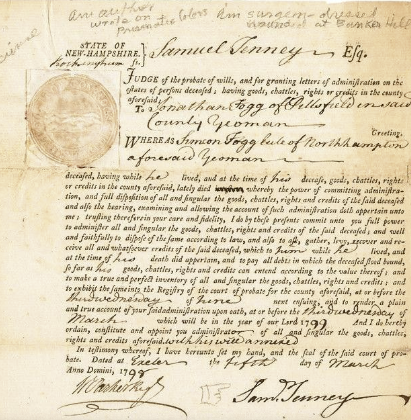 Am author
wrote on
Prismatic Colors
Am surgeon - dressed
wound at Bunker Hill
STATE OF
NEW-HAMPSHIRE.
Rockingham ss.
Samuel Tenney Esq.
JUDGE of the probate of wills, and for granting letters of administration on the
estates of persons deceased; having goods, chattles, rights or credits in the county
aforesaid;
To Jonathan Fogg of Pittsfield in said
County Yeoman
Greeting.
WHEREAS Simeon Fogg late of Northhampton
aforesaid Yeoman
deceased, having while he lived, and at the time of his decease, goods, chattles, rights
or credits in the county aforesaid, lately died whereby the power of committing administra-
tion, and full disposition of all and singular the goods, chattles, rights or credits of the said deceased
and also the hearing, examining and allowing the account of such administration doth appertain unto
me; trusting therefore in your care and fidelity, I do by these presents commit unto you full power
to administer all and singular the goods, chattles, rights and credits of the said deceased; and well
and faithfully to dispose of the same according to law, and also to ask, gather, levy, recover and re-
ceive all and whatsoever credits of the said deceased, which to him while he lived, and
at the time of his death did appertain, and to pay all debts in which the deceased stood bound,
so far as his goods, chattles, rights and credits can extend according to the value thereof; and
to make a true and perfect inventory of all and singular the goods, chattles, rights and credits; and
to exhibit the same into the Registry of the court of probate for the county aforesaid, at or before the
third wednesday of June next ensuing, and to render a plain
and true account of your said administration upon oath, at or before the third wednesday of
March which will be in the year of our Lord 1799 And I do hereby
ordain, constitute and appoint you administrator of all and singular the goods, chattles,
rights and credits aforesaid. with his will annexed
In testimony whereof, I have hereunto set my hand, and the seal of the said court of pro-
bate. Dated at Exeter the fifth day of March
Anno Domini, 1798
Wm Parker Regr
Saml. Tenney